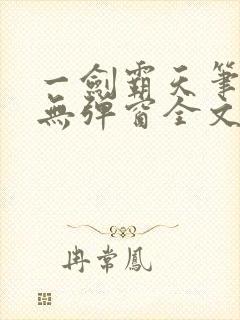 一劍霸天筆
無彈窗全文
冉常鳳